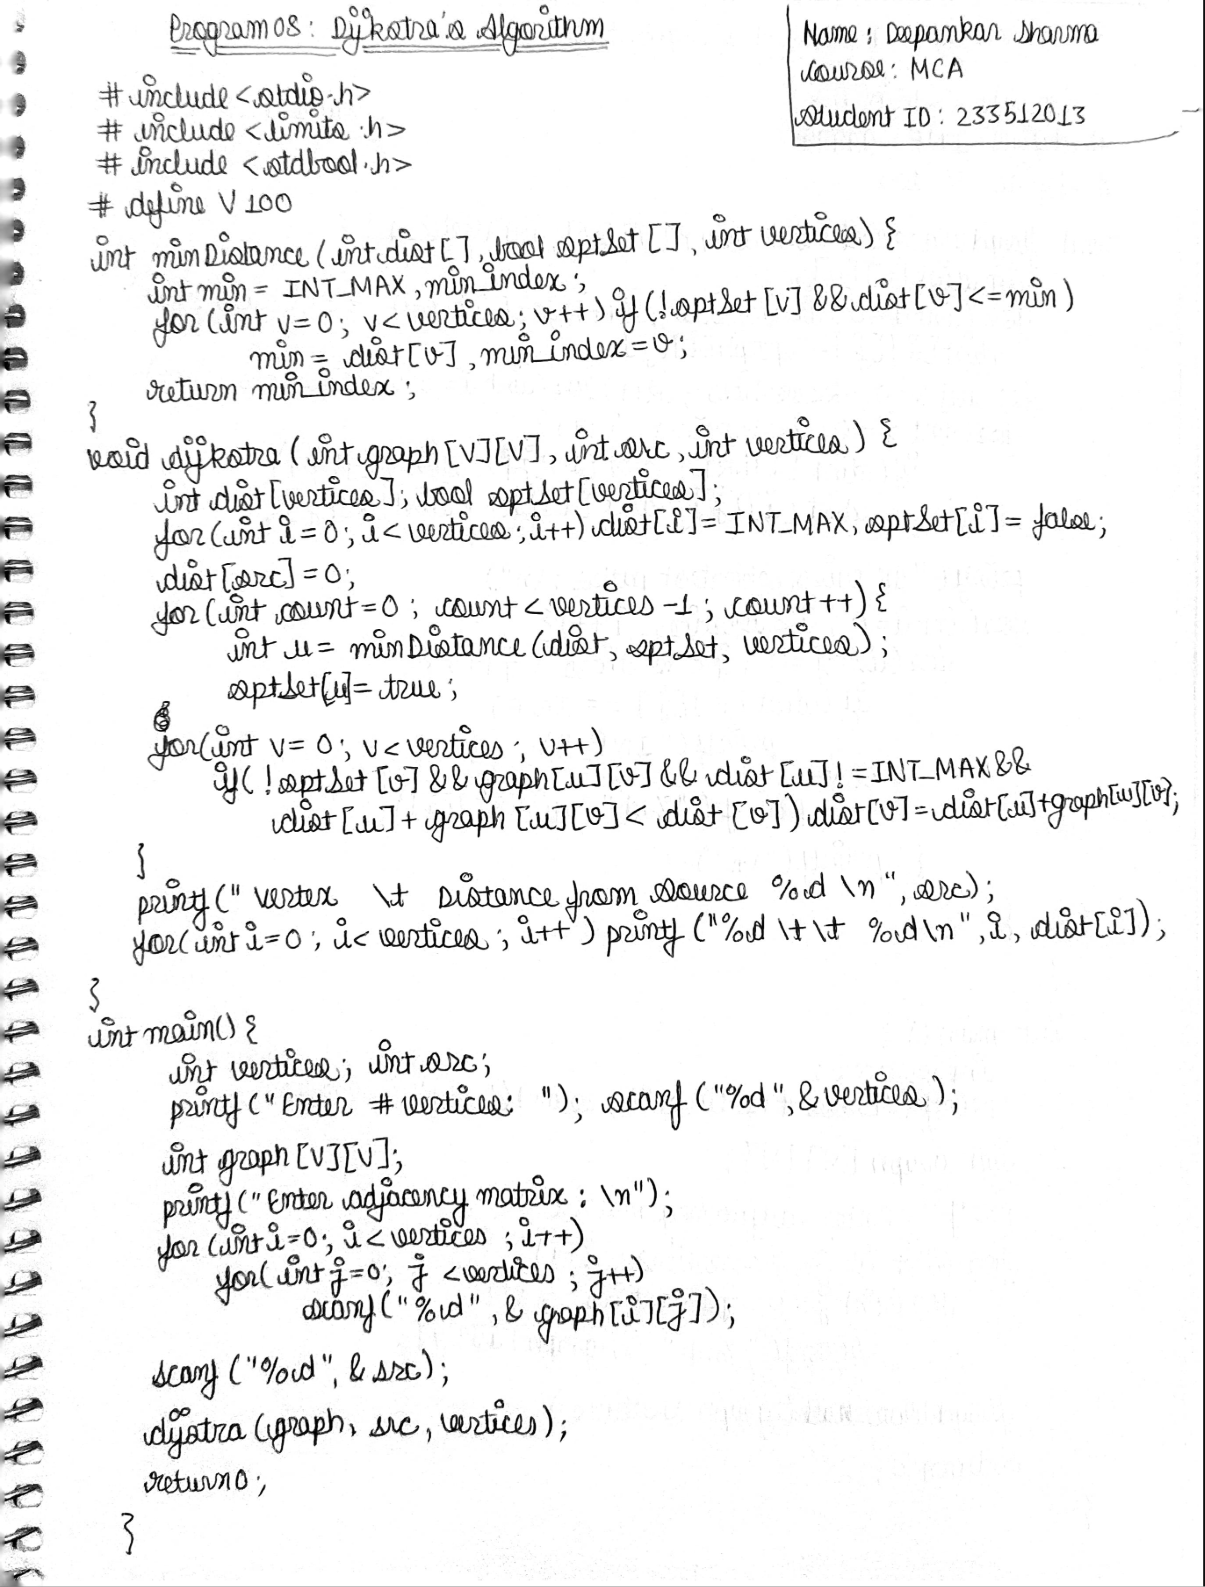 Program 08: Dijkstra's Algorithm
Name: Deepankar Sharma
Course: MCA
Student ID: 233512013
#include <stdio.h>
#include <limits.h>
#include <stdbool.h>
#define V 100
int minDistance (int dist[], bool sptSet[], int vertices) {
int min = INT_MAX, min_index;
for (int v=0; v<vertices; v++) if (!sptSet[v] && dist[v]<=min)
min = dist[v], min_index=v;
return min_index;
}
void dijkstra (int graph[V][V], int src, int vertices) {
int dist[vertices]; bool sptSet[vertices];
for(int i=0; i<vertices; i++) dist[i]= INT_MAX, sptSet[i]= false;
dist[src]=0;
for(int count=0; count<vertices-1; count++) {
int u= minDistance(dist, sptSet, vertices);
sptSet[u]= true;
for(int v=0; v<vertices; v++)
if( !sptSet[v] && graph[u][v] && dist[u]!=INT_MAX &&
dist[u]+graph[u][v]< dist[v]) dist[v]=dist[u]+graph[u][v];
}
printf(" Vertex \t Distance from source %d \n", src);
for(int i=0; i<vertices; i++) printf("%d \t\t %d\n", i, dist[i]);
}
int main() {
int vertices; int src;
printf("Enter # vertices: "); scanf("%d", &vertices);
int graph[V][V];
printf("Enter adjacency matrix: \n");
for (int i=0; i<vertices; i++)
for(int j=0; j<vertices; j++)
scanf("%d", & graph[i][j]);
scanf("%d", & src);
dijstra (graph, src, vertices);
return 0;
}